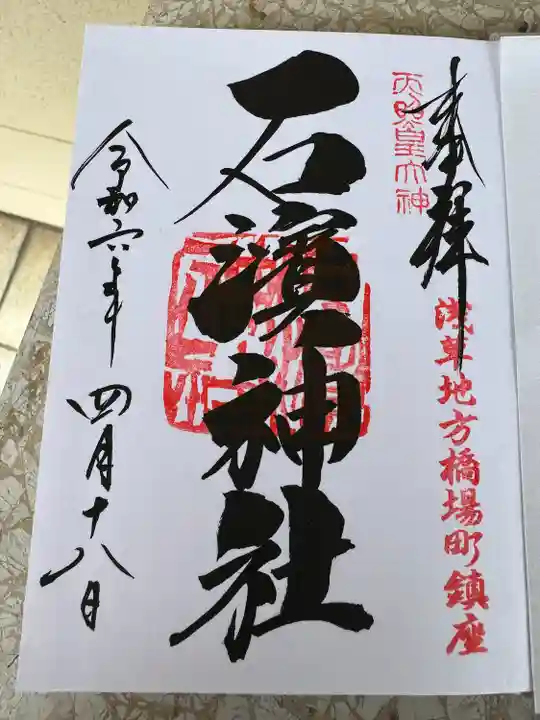 奉拝
天照皇大神
浅草地方橋場町鎮座
石濱神社
令和六年四月十八日